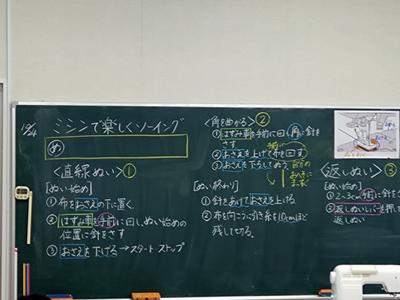 10/24
ミシンで楽しくソーイング
め
<直線ぬい>①
[ぬい始め]
①布をおさえの下に置く。
②はずみ車を手前に回し、ぬい始めの
位置に針をさす
③おさえを下げる→スタートストップ
<角を曲がる>②
①はずみ車を手前に回し角に針を
さす
②おさえを上げて布を回す
③おさえを下ろしてぬう
[ぬい終わり]
①針をあげておさえを上げる
②布を向こうに引き糸を10cmほど
残して切る。
<返しぬい>③
[ぬい始め]
①2~3cm手前に針を
②返しぬいレバーを押して
返しぬい